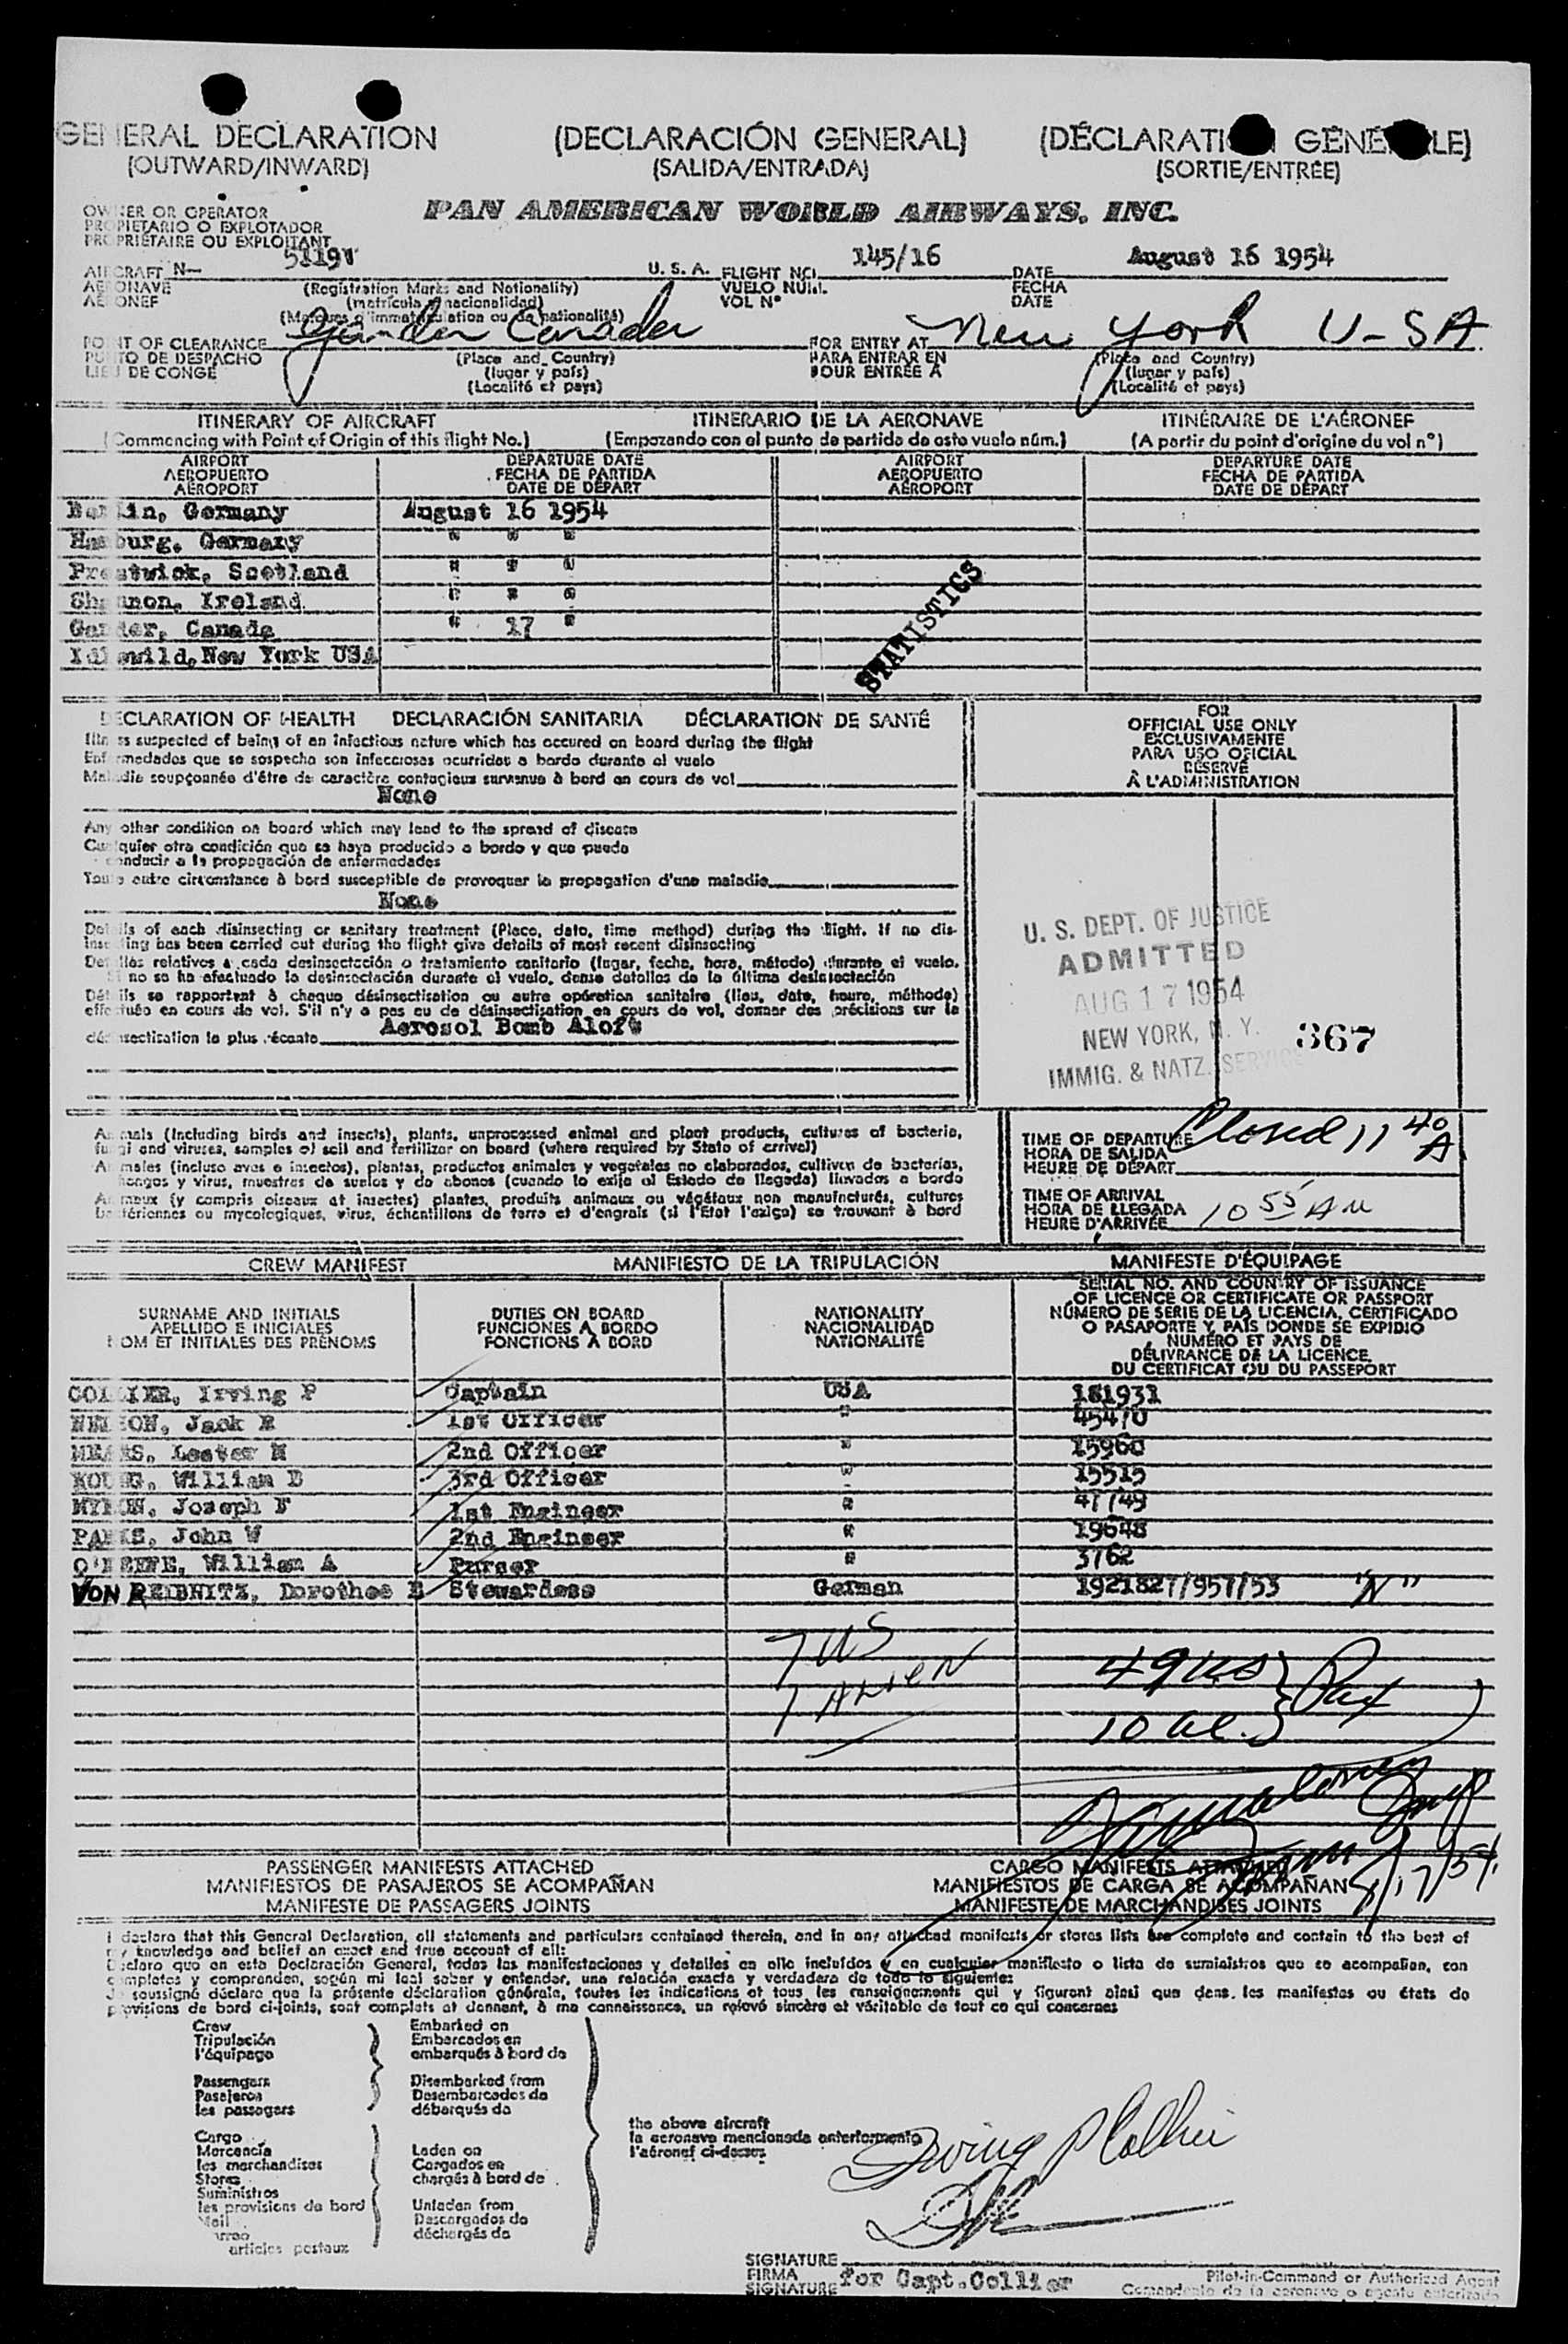 GENERAL DECLARATION (DECLARACIÓN GENERAL) (DÉCLARATION GÉNÉRALE)
(OUTWARD/INWARD) (SALIDA/ENTRADA) (SORTIE/ENTRÉE)
OWNER OR OPERATOR PAN AMERICAN WORLD AIRWAYS, INC.
PROPIETARIO O EXPLOTADOR
PROPRIÉTAIRE OU EXPLOITANT
AIRCRAFT N— U. S. A. FLIGHT NO. 145/16 DATE August 16 1954
AERONAVE (Registration Marks and Nationality) VUELO NÚM. FECHA
AÉRONEF (matrícula y nacionalidad) VOL N° DATE
(Marques d'immatriculation ou de nationalité)
POINT OF CLEARANCE Gander Canada FOR ENTRY AT New York U-SA
PUNTO DE DESPACHO (Place and Country) PARA ENTRAR EN (Place and Country)
LIEU DE CONGÉ (lugar y país) POUR ENTRÉE A (lugar y país)
(Localité et pays) (Localité et pays)
ITINERARY OF AIRCRAFT ITINERARIO DE LA AERONAVE ITINÉRAIRE DE L'AÉRONEF
(Commencing with Point of Origin of this flight No.) (Empezando con el punto de partida de este vuelo núm.) (A partir du point d'origine du vol n°)
AIRPORT DEPARTURE DATE AIRPORT DEPARTURE DATE
AEROPUERTO FECHA DE PARTIDA AEROPUERTO FECHA DE PARTIDA
AÉROPORT DATE DE DÉPART AÉROPORT DATE DE DÉPART
Berlin, Germany August 16 1954
Hamburg, Germany " " "
Prestwick, Scotland " " "
Shannon, Ireland " " "
Gander, Canada " 17 "
Idlewild, New York USA
STATISTICS
DECLARATION OF HEALTH DECLARACIÓN SANITARIA DÉCLARATION DE SANTÉ
Illness suspected of being of an infectious nature which has occured on board during the flight
Enfermedades que se sospecha son infecciosas ocurridas a bordo durante el vuelo
Maladie soupçonnée d'être de caractère contagieux survenue à bord en cours de vol
None
Any other condition on board which may lead to the spread of disease
Cualquier otra condición que se haya producido a bordo y que pueda
conducir a la propagación de enfermedades
Toute autre circonstance à bord susceptible de provoquer la propagation d'une maladie
None
Details of each disinsecting or sanitary treatment (Place, date, time method) during the flight. If no dis-
insecting has been carried out during the flight give details of most recent disinsecting
Detalles relativos a cada desinsectación o tratamiento sanitario (lugar, fecha, hora, método) durante el vuelo.
Si no se ha efectuado la desinsectación durante el vuelo, dense detalles de la última desinsectación
Détails se rapportant à chaque désinsectisation ou autre opération sanitaire (lieu, date, heure, méthode)
effectuée en cours de vol. S'il n'y a pas eu de désinsectisation en cours de vol, donner des précisions sur la
désinsectisation la plus récente Aerosol Bomb Aloft
FOR
OFFICIAL USE ONLY
EXCLUSIVAMENTE
PARA USO OFICIAL
RÉSERVÉ
À L'ADMINISTRATION
U. S. DEPT. OF JUSTICE
ADMITTED
AUG 17 1954
NEW YORK, N. Y.
IMMIG. & NATZ. SERVICE
367
Animals (Including birds and insects), plants, unprocessed animal and plant products, cultures of bacteria,
fungi and viruses, samples of soil and fertilizer on board (where required by State of arrival)
Animales (incluso aves e insectos), plantas, productos animales y vegetales no elaborados, cultivos de bacterias,
hongos y virus, muestras de suelos y de abonos (cuando lo exija el Estado de llegada) llevados a bordo
Animaux (y compris oiseaux et insectes) plantes, produits animaux ou végétaux non manufacturés, cultures
bactériennes ou mycologiques, virus, échantillons de terre et d'engrais (si l'État l'exige) se trouvant à bord
TIME OF DEPARTURE Closed 11 40 A
HORA DE SALIDA
HEURE DE DÉPART
TIME OF ARRIVAL
HORA DE LLEGADA
HEURE D'ARRIVÉE 10 55 AM
CREW MANIFEST MANIFIESTO DE LA TRIPULACIÓN MANIFESTE D'ÉQUIPAGE
SURNAME AND INITIALS
APELLIDO E INICIALES
NOM ET INITIALES DES PRÉNOMS
DUTIES ON BOARD
FUNCIONES A BORDO
FONCTIONS À BORD
NATIONALITY
NACIONALIDAD
NATIONALITÉ
SERIAL NO. AND COUNTRY OF ISSUANCE
OF LICENCE OR CERTIFICATE OR PASSPORT
NÚMERO DE SERIE DE LA LICENCIA, CERTIFICADO
O PASAPORTE Y PAÍS DONDE SE EXPIDIÓ
NUMÉRO ET PAYS DE
DÉLIVRANCE DE LA LICENCE
DU CERTIFICAT OU DU PASSEPORT
COLLIER, Irving P Captain USA 181931
NELSON, Jack R 1st Officer " 45470
MEANS, Lester H 2nd Officer " 15960
YOUNG, William B 3rd Officer " 15515
MYRON, Joseph F 1st Engineer " 47749
PARKS, John W 2nd Engineer " 19648
O'KEEFE, William A Purser " 3762
VON REIBNITZ, Dorothee E Stewardess German 1921827/957/53 "N"
7 US
1 ALIEN
49 US
10 al. } Pax
8/17/54
PASSENGER MANIFESTS ATTACHED CARGO MANIFESTS ATTACHED
MANIFIESTOS DE PASAJEROS SE ACOMPAÑAN MANIFIESTOS DE CARGA SE ACOMPAÑAN
MANIFESTE DE PASSAGERS JOINTS MANIFESTE DE MARCHANDISES JOINTS
I declare that this General Declaration, all statements and particulars contained therein, and in any attached manifests or stores lists are complete and contain to the best of
my knowledge and belief an exact and true account of all:
Declaro que en esta Declaración General, todas las manifestaciones y detalles en ello incluídos y en cualquier manifiesto o lista de suministros que se acompañan, son
completos y comprenden, según mi leal saber y entender, una relación exacta y verdadera de todo lo siguiente:
Je soussigné déclare que la présente déclaration générale, toutes les indications et tous les renseignements qui y figurent ainsi que dans les manifestes ou états de
provisions de bord ci-joints, sont complets et donnent, à ma connaissance, un relevé sincère et véritable de tout ce qui concerne:
Crew
Tripulación
l'équipage
Passengers
Pasajeros
les passagers
Cargo
Mercancía
les marchandises
Stores
Suministros
les provisions de bord
Mail
articles postaux
Embarked on
Embarcados en
embarqués à bord de
Disembarked from
Desembarcados de
débarqués de
Laden on
Cargados en
chargés à bord de
Unladen from
Descargados de
déchargés de
the above aircraft
la aeronave mencionada anteriormente
l'aéronef ci-dessus
Irving P Collier
SIGNATURE
FIRMA for Capt. Collier Pilot-in-Command or Authorized Agent
SIGNATURE Comandante de la aeronave o agente autorizado